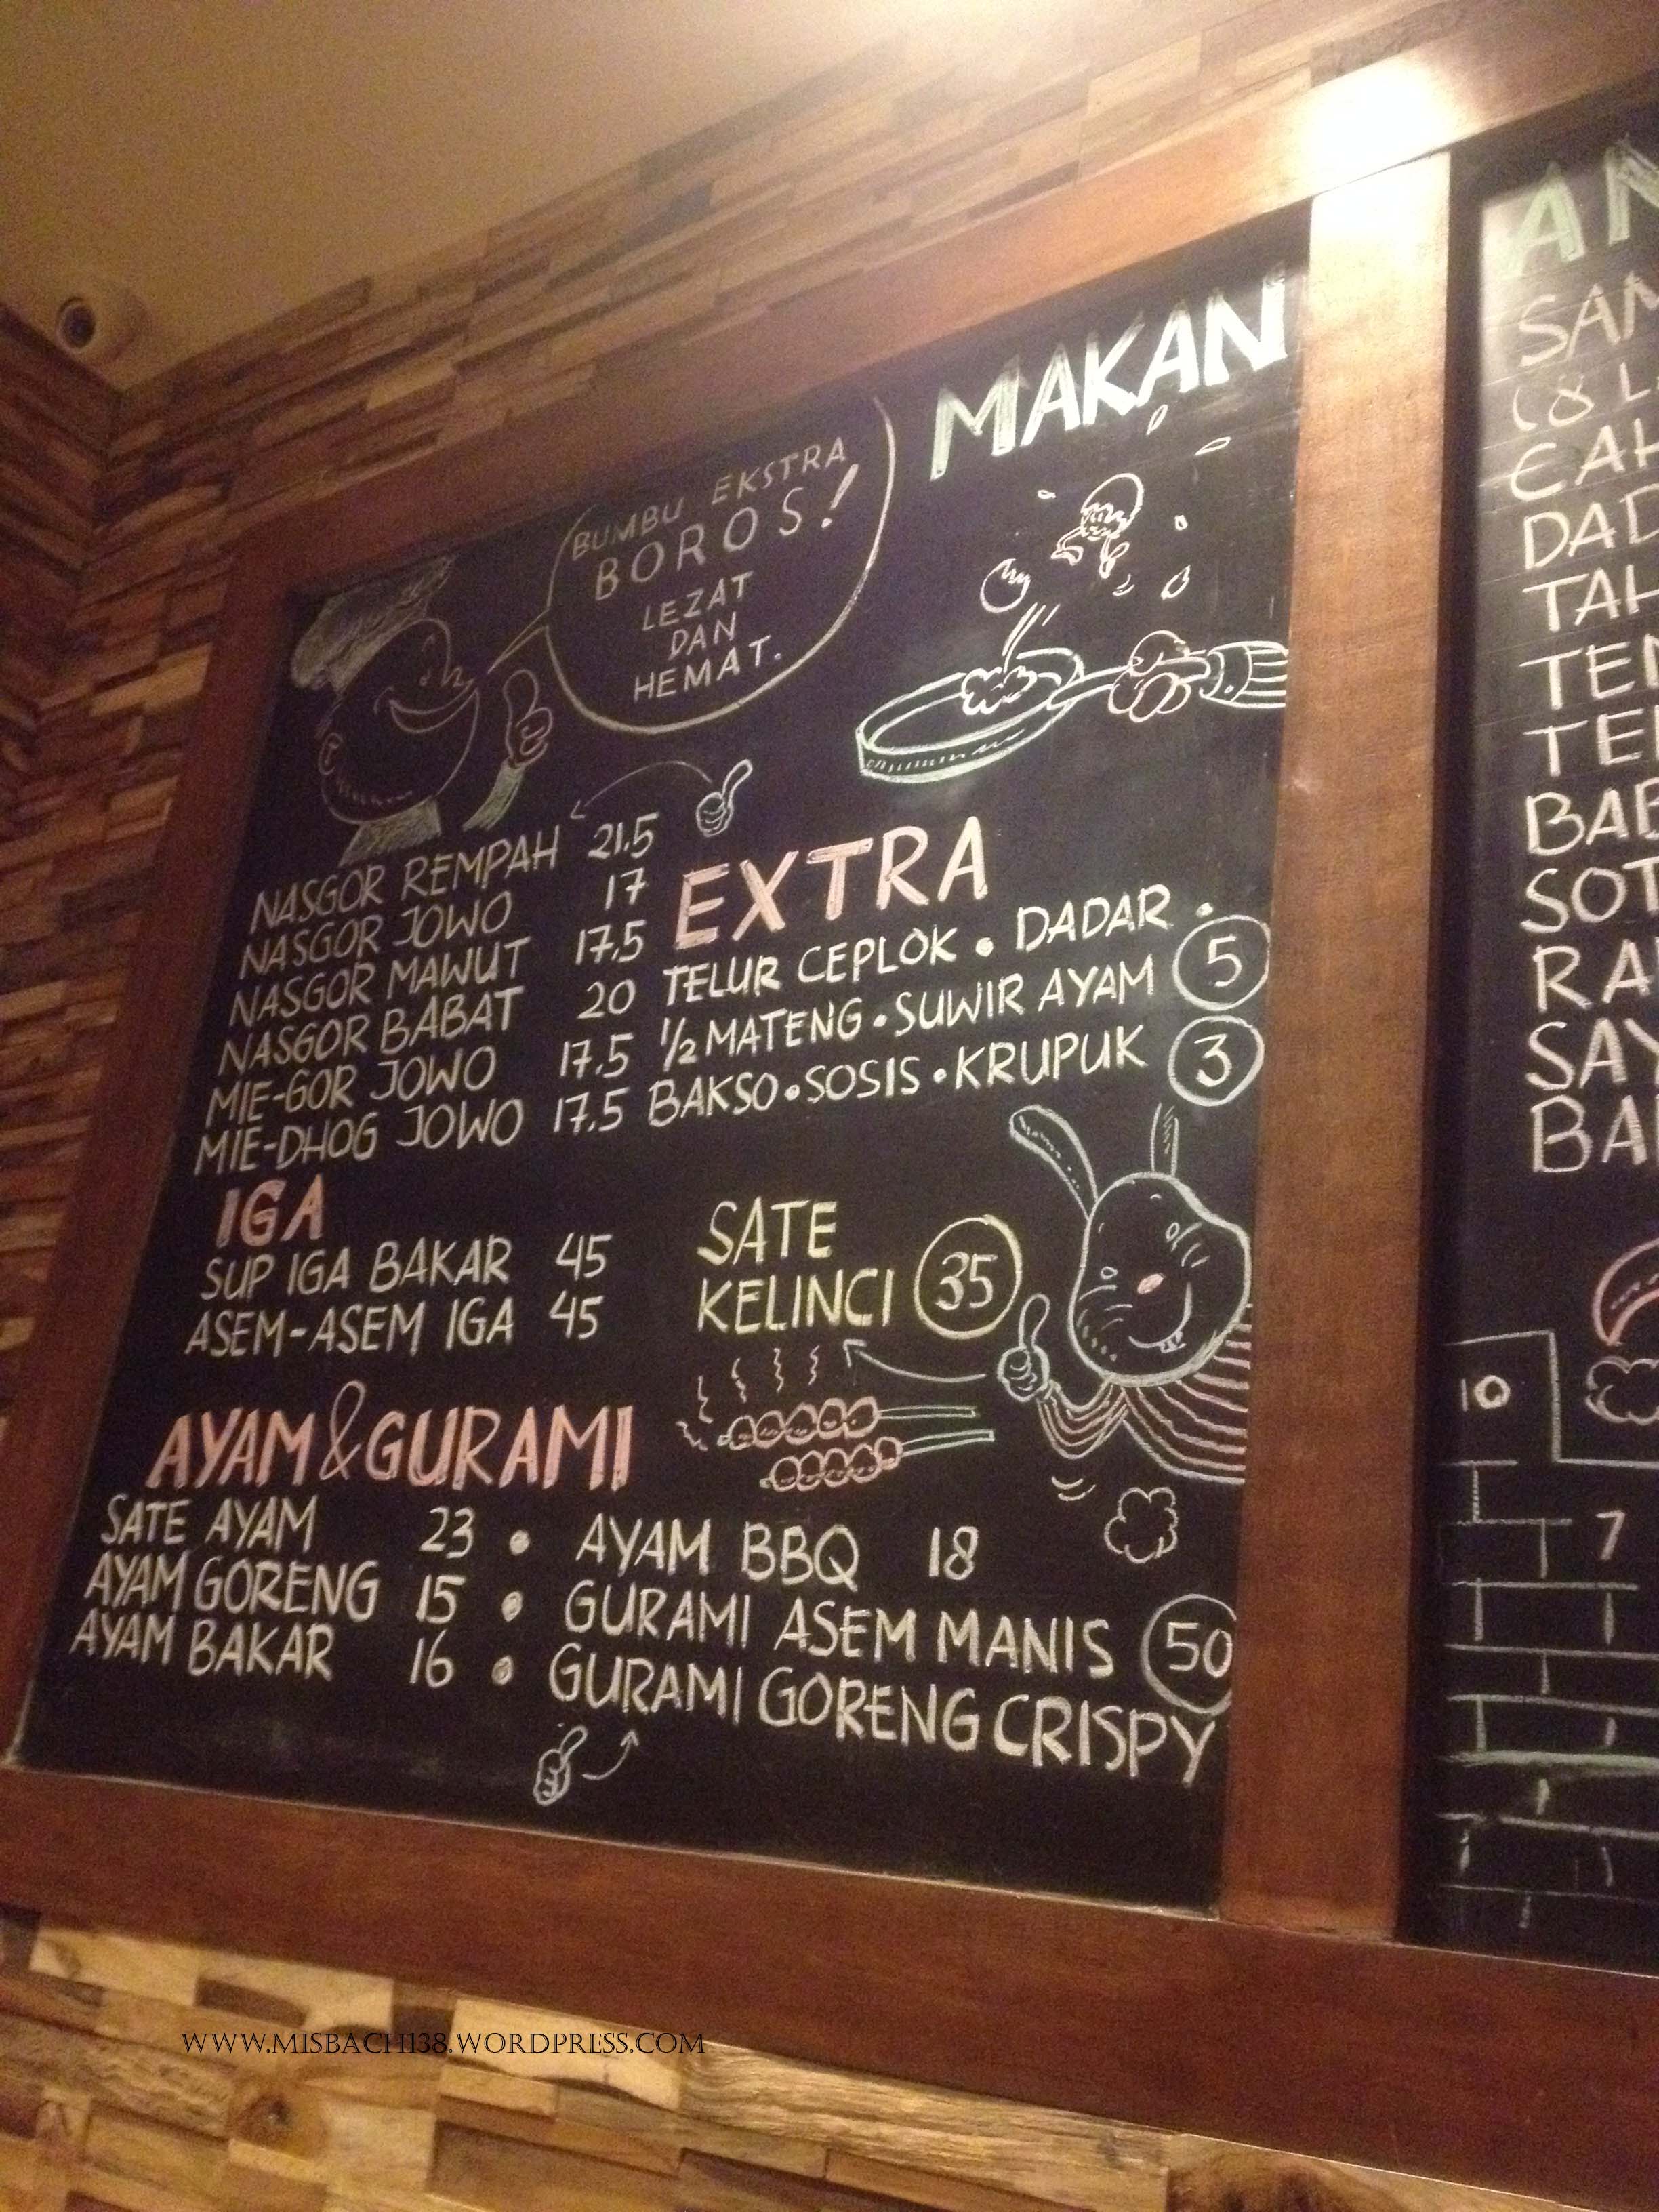 MAKAN
BUMBU EKSTRA
BOROS!
LEZAT
DAN
HEMAT.
NASGOR REMPAH 21.5
NASGOR JOWO 17
NASGOR MAWUT 17.5
NASGOR BABAT 20
MIE-GOR JOWO 17.5
MIE-DHOG JOWO 17.5
EXTRA
TELUR CEPLOK • DADAR •
1/2 MATENG • SUWIR AYAM 5
BAKSO • SOSIS • KRUPUK 3
IGA
SUP IGA BAKAR 45
ASEM-ASEM IGA 45
SATE
KELINCI 35
AYAM & GURAMI
SATE AYAM 23 • AYAM BBQ 18
AYAM GORENG 15 • GURAMI ASEM MANIS 50
AYAM BAKAR 16 • GURAMI GORENG CRISPY
10
7
WWW.MISBACH138.WORDPRESS.COM